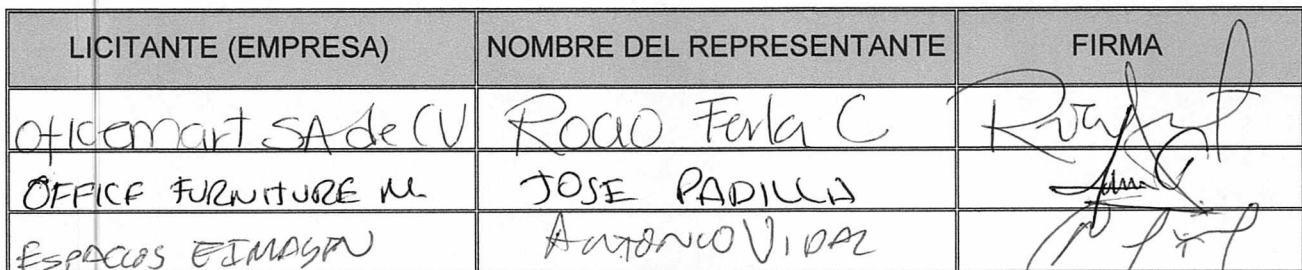 LICITANTE (EMPRESA) NOMBRE DEL REPRESENTANTE FIRMA
Oficemart SA de CV Rocio Ferla C
OFFICE FURNITURE M. JOSE PADILLA
ESPACIOS E IMAGEN ANTONIO VIDAL